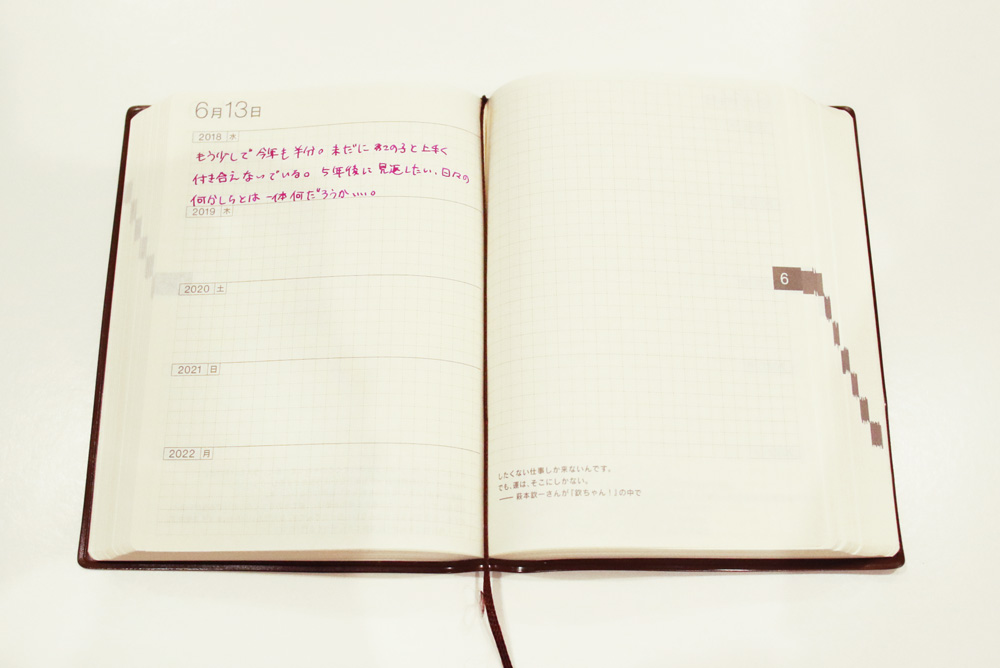 6月13日
2018 水
もう少しで今年も半分。未だに コイツと上手く
付き合えないでいる。5年後に見返したい、日々の
何かしらとは一体何だろうか…。
2019 木
2020 土
2021 日
2022 月
6
したくない仕事しか来ないんです。
でも、運は、そこにしかない。
—— 萩本欽一さんが『欽ちゃん！』の中で